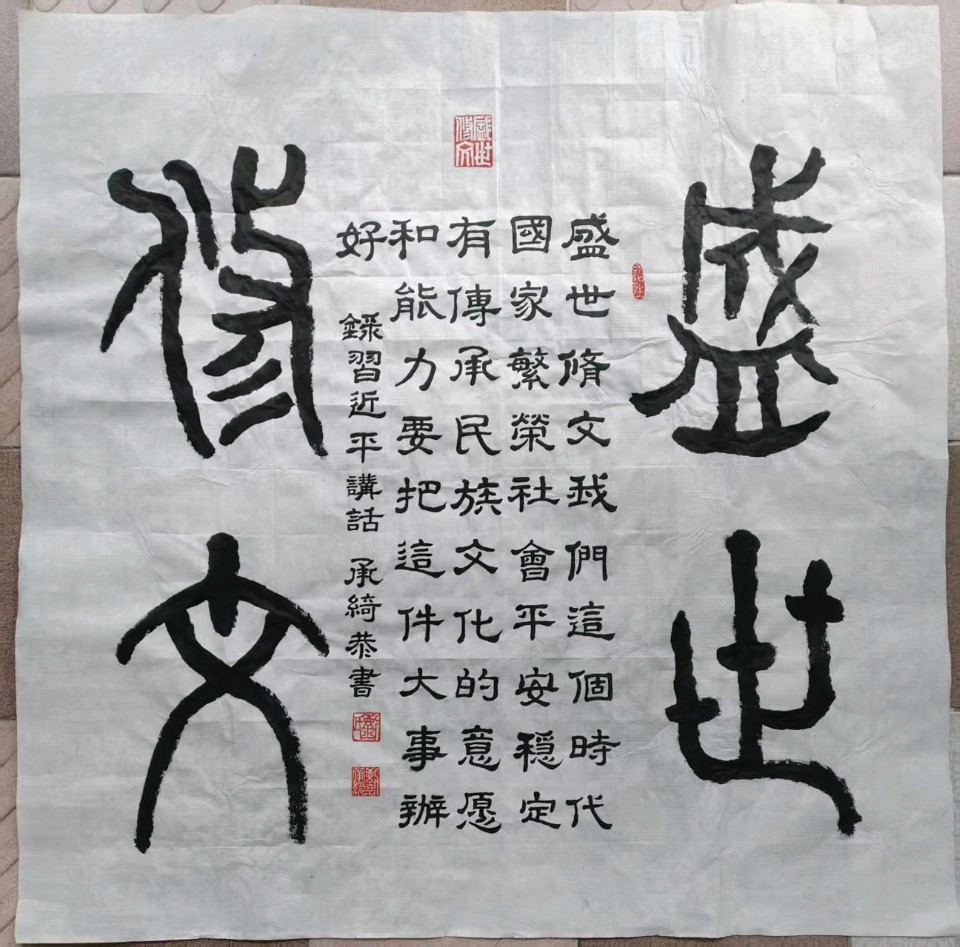 盛世
盛世脩文我們這個時代
國家繁榮社會平安穩定
有傳承民族文化的意愿
和能力要把這件大事辦
好
錄習近平講話 承綺恭書
修文
盛世修文